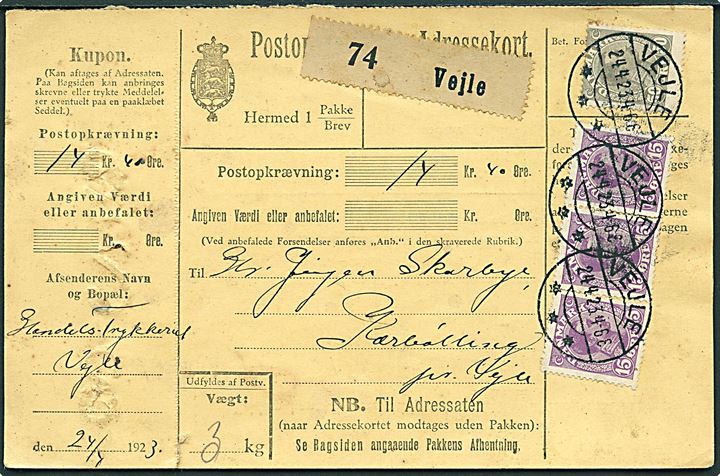 Kupon.
(Kan aftages af Adressaten.
Paa Bagsiden kan anbringes
skrevne eller trykte Meddelel-
ser eventuelt paa en paaklæbet
Seddel.)
Postopkrævning:
14 Kr. 40 Øre.
Angiven Værdi
eller anbefalet:
Kr. Øre.
Afsenderens Navn
og Bopæl:
Handelstrykkeriet
Vejle
den 24/4 1923.
Adressekort.
74 Vejle
Hermed 1 Pakke
Brev
Postopkrævning: 14 Kr. 40 Øre.
Angiven Værdi eller anbefalet: Kr. Øre.
(Ved anbefalede Forsendelser anføres „Anb.“ i den skraverede Rubrik.)
Til Hr. Jørgen Skarbye,
Kærbølling
pr. Vejle
Udfyldes af Postv.
Vægt:
3 kg
NB. Til Adressaten
(naar Adressekortet modtages uden Pakken):
Se Bagsiden angaaende Pakkens Afhentning.
Bet. For
VEJLE
24.4.23.4-6 E
VEJLE
24.4.23.4-6 E
VEJLE
24.4.23.4-6 E
15
15
15